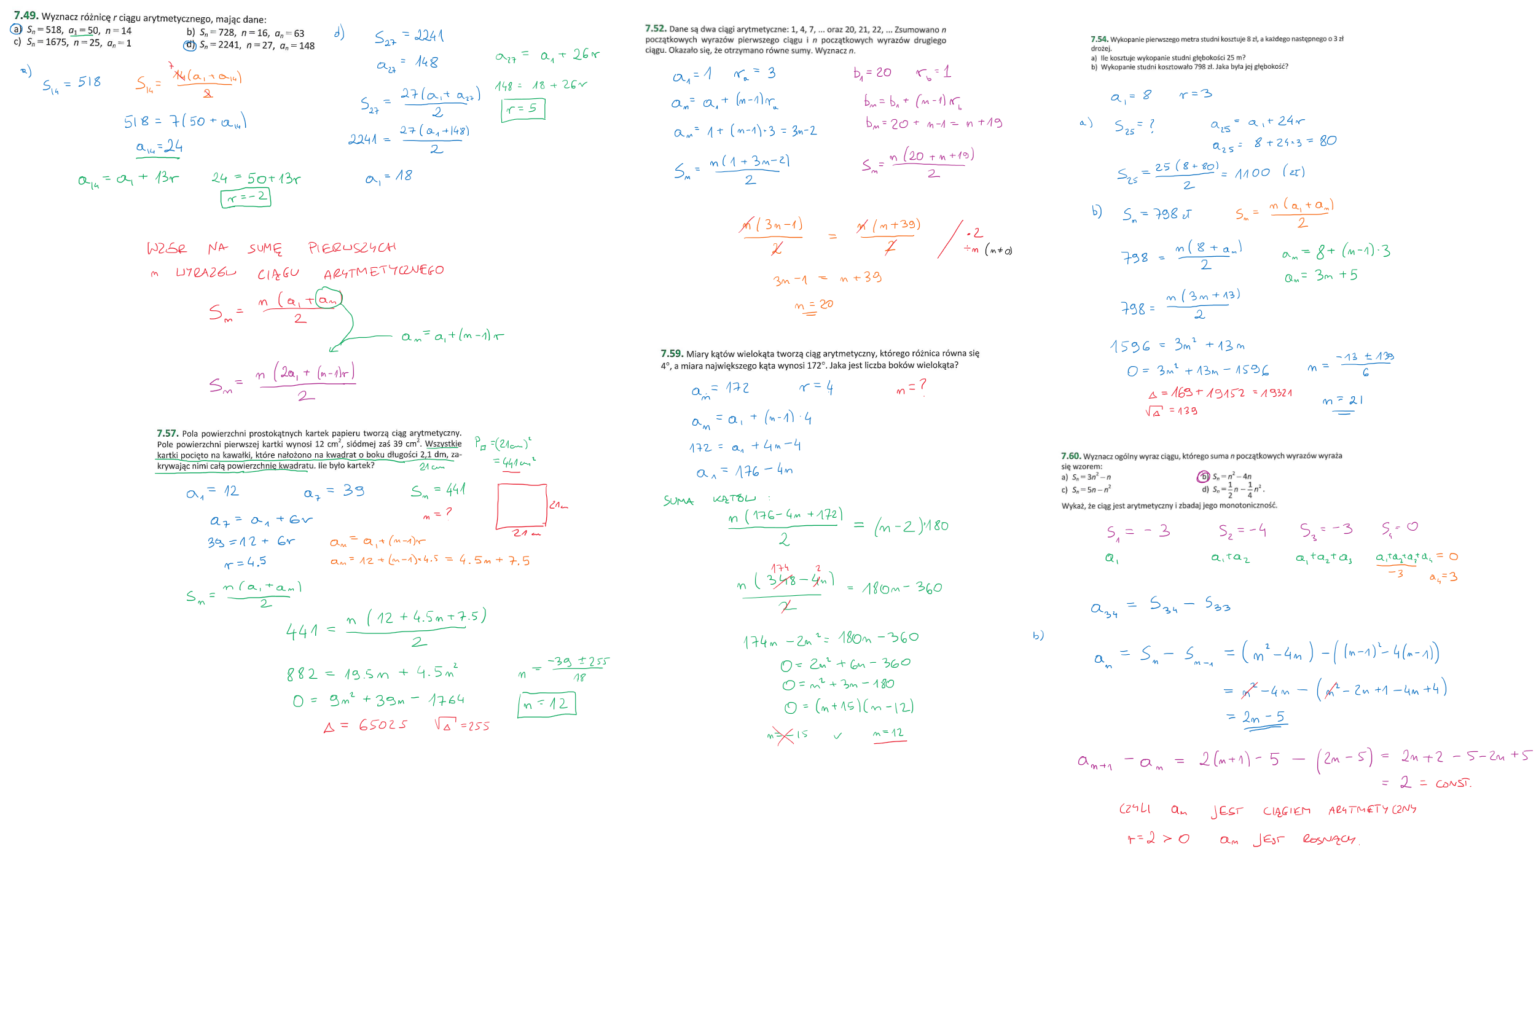 7.49. Wyznacz różnicę r ciągu arytmetycznego, mając dane:
a) Sₙ = 518, a₁ = 50, n = 14
b) Sₙ = 728, n = 16, aₙ = 63
c) Sₙ = 1675, n = 25, aₙ = 1
d) Sₙ = 2241, n = 27, aₙ = 148
a)
S₁₄ = 518
S₁₄ = 14(a₁ + a₁₄) / 2
7
518 = 7(50 + a₁₄)
a₁₄ = 24
a₁₄ = a₁ + 13r
24 = 50 + 13r
r = -2
d)
S₂₇ = 2241
a₂₇ = 148
S₂₇ = 27(a₁ + a₂₇) / 2
2241 = 27(a₁ + 148) / 2
a₁ = 18
a₂₇ = a₁ + 26r
148 = 18 + 26r
r = 5
WZÓR NA SUMĘ PIERWSZYCH
n WYRAZÓW CIĄGU ARYTMETYCZNEGO
Sₙ = n(a₁ + aₙ) / 2
aₙ = a₁ + (n-1)r
Sₙ = n(2a₁ + (n-1)r) / 2
7.57. Pola powierzchni prostokątnych kartek papieru tworzą ciąg arytmetyczny.
Pole powierzchni pierwszej kartki wynosi 12 cm², siódmej zaś 39 cm². Wszystkie
kartki pocięto na kawałki, które nałożono na kwadrat o boku długości 2,1 dm, za-
krywając nimi całą powierzchnię kwadratu. Ile było kartek?
21cm
P□ = (21cm)²
= 441cm²
a₁ = 12
a₇ = 39
Sₙ = 441
n = ?
21cm
21cm
a₇ = a₁ + 6r
39 = 12 + 6r
r = 4.5
aₙ = a₁ + (n-1)r
aₙ = 12 + (n-1)·4.5 = 4.5n + 7.5
Sₙ = n(a₁ + aₙ) / 2
441 = n(12 + 4.5n + 7.5) / 2
882 = 19.5n + 4.5n²
0 = 9n² + 39n - 1764
Δ = 65025 √Δ = 255
n = -39 ± 255 / 18
n = 12
7.52. Dane są dwa ciągi arytmetyczne: 1, 4, 7, ... oraz 20, 21, 22, ... Zsumowano n
początkowych wyrazów pierwszego ciągu i n początkowych wyrazów drugiego
ciągu. Okazało się, że otrzymano równe sumy. Wyznacz n.
a₁ = 1 rₐ = 3
aₙ = a₁ + (n-1)rₐ
aₙ = 1 + (n-1)·3 = 3n-2
Sₙ = n(1 + 3n-2) / 2
b₁ = 20 r_b = 1
bₙ = b₁ + (n-1)r_b
bₙ = 20 + n-1 = n + 19
Sₙ = n(20 + n + 19) / 2
n(3n-1) / 2 = n(n+39) / 2 / ·2
÷n (n≠0)
3n-1 = n + 39
n = 20
7.59. Miary kątów wielokąta tworzą ciąg arytmetyczny, którego różnica równa się
4°, a miara największego kąta wynosi 172°. Jaka jest liczba boków wielokąta?
aₙ = 172 r = 4 n = ?
aₙ = a₁ + (n-1)·4
172 = a₁ + 4n-4
a₁ = 176 - 4n
SUMA KĄTÓW:
n(176-4n+172) / 2 = (n-2)·180
174 2
n(348-4n) / 2 = 180n - 360
174n - 2n² = 180n - 360
0 = 2n² + 6n - 360
0 = n² + 3n - 180
0 = (n+15)(n-12)
n = -15 ∨ n = 12
7.54. Wykopanie pierwszego metra studni kosztuje 8 zł, a każdego następnego o 3 zł
drożej.
a) Ile kosztuje wykopanie studni głębokości 25 m?
b) Wykopanie studni kosztowało 798 zł. Jaka była jej głębokość?
a₁ = 8 r = 3
a)
S₂₅ = ?
a₂₅ = a₁ + 24r
a₂₅ = 8 + 24·3 = 80
S₂₅ = 25(8+80) / 2 = 1100 (zł)
b)
Sₙ = 798 zł
Sₙ = n(a₁ + aₙ) / 2
798 = n(8 + aₙ) / 2
aₙ = 8 + (n-1)·3
aₙ = 3n + 5
798 = n(3n+13) / 2
1596 = 3n² + 13n
0 = 3n² + 13n - 1596
Δ = 169 + 19152 = 19321
√Δ = 139
n = -13 ± 139 / 6
n = 21
7.60. Wyznacz ogólny wyraz ciągu, którego suma n początkowych wyrazów wyraża
się wzorem:
a) Sₙ = 3n² - n
b) Sₙ = n² - 4n
c) Sₙ = 5n - n²
d) Sₙ = 1/2 n - 1/4 n².
Wykaż, że ciąg jest arytmetyczny i zbadaj jego monotoniczność.
S₁ = -3 S₂ = -4 S₃ = -3 S₄ = 0
a₁ a₁+a₂ a₁+a₂+a₃ a₁+a₂+a₃+a₄ = 0
-3 a₄ = 3
a₃₄ = S₃₄ - S₃₃
b)
aₙ = Sₙ - Sₙ₋₁ = (n²-4n) - ((n-1)²-4(n-1))
= n² - 4n - (n² - 2n + 1 - 4n + 4)
= 2n - 5
aₙ₊₁ - aₙ = 2(n+1) - 5 - (2n-5) = 2n + 2 - 5 - 2n + 5
= 2 = CONST.
CZYLI aₙ JEST CIĄGIEM ARYTMETYCZNY
r = 2 > 0 aₙ JEST ROSNĄCY.